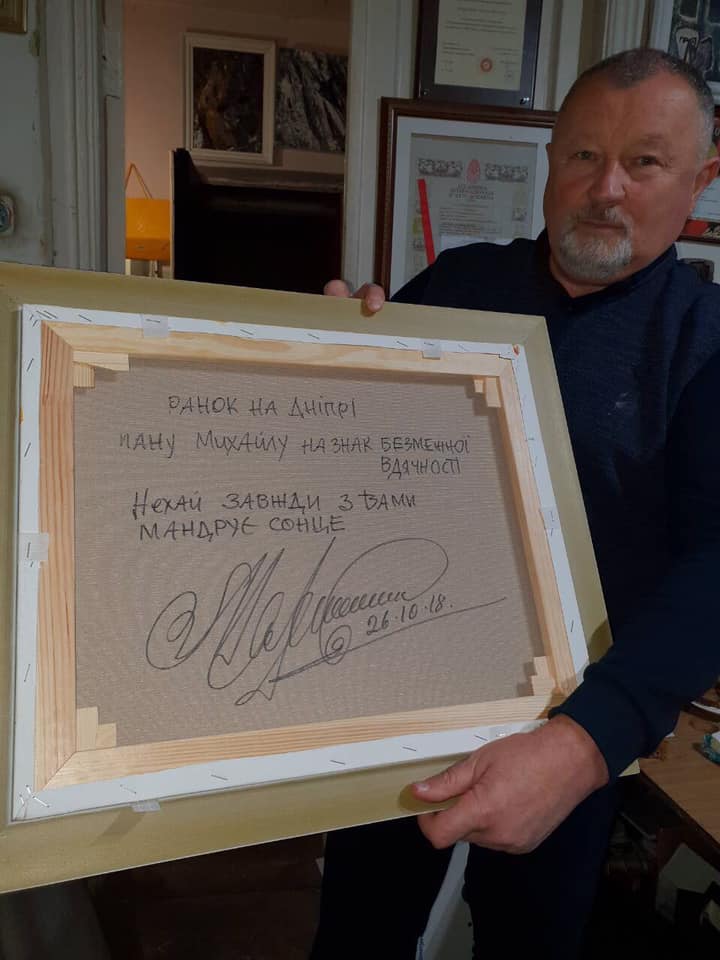 РАНОК НА ДНІПРІ
ПАНУ МИХАЙЛУ НА ЗНАК БЕЗМЕЖНОЇ
ВДЯЧНОСТІ
НЕХАЙ ЗАВЖДИ З ВАМИ
МАНДРУЄ СОНЦЕ
26.10.18.